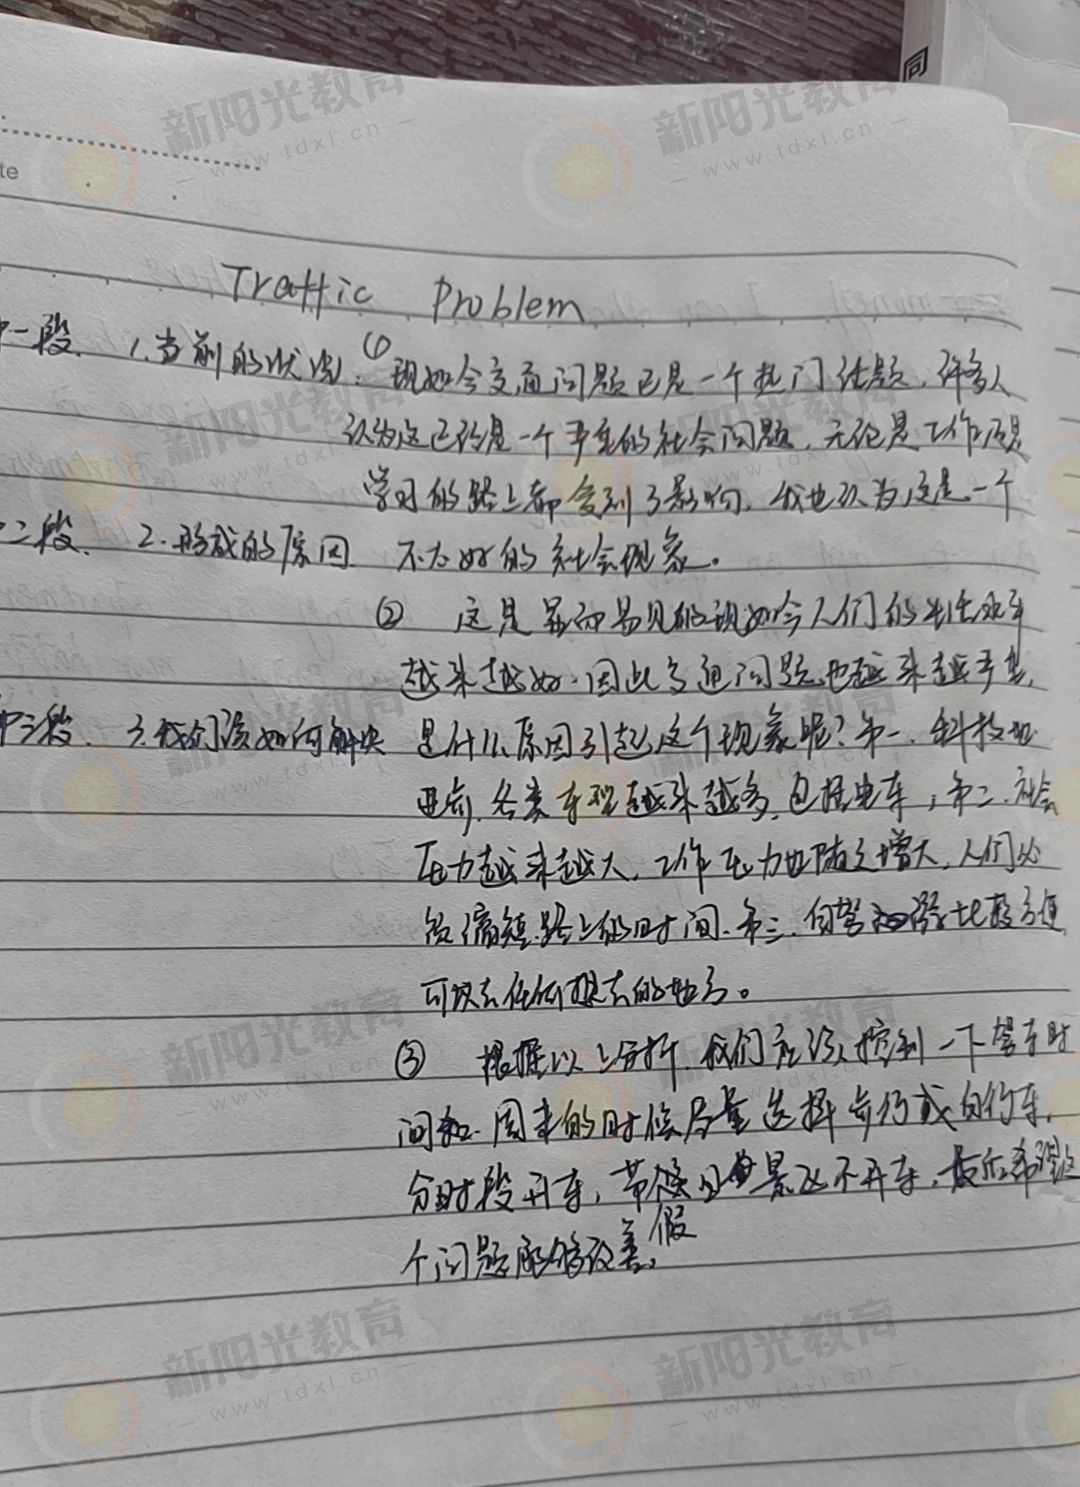 同
te
Traffic Problem
一段. 1.当前的状况: ① 现如今交通问题已是一个热门话题,许多人
认为这已经是一个严重的社会问题,无论是工作还是
学习的路上都受到了影响,我也认为这是一个
二段. 2.形成的原因 不太好的社会现象。
② 这是显而易见的现如今人们的生活水平
越来越好.因此交通问题也越来越严重,
三段. 3.我们该如何解决 是什么原因引起这个现象呢?第一.科技的
进步,各类车型越来越多,包括电车,第二.社会
压力越来越大,工作压力也随之增大,人们必
须缩短路上的时间.第三.自驾 比较方便
可以去任何想去的地方。
③ 根据以上分析,我们应该控制一下驾车时
间和 周末的时候尽量选择步行或自行车,
分时段开车, 不开车,最后希望这
个问题能够改善。
假
新阳光教育
www.tdxl.cn